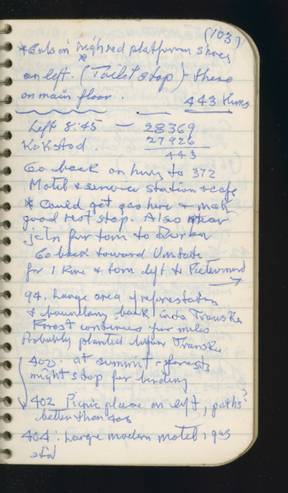 (103)
on left. (Toilet stop) - these
on main floor. 443 Kms
Left 8:45 — 28369
Kokstad 27926
443
Go back on hwy to 372
Motel & service station & cafe
* Could get gas here & make
good rest stop. Also near
jctn for turn to Durban
Go back toward Umtata
for 1 Km & turn left to
94. Large area of reforestation
& boundary back into Transkei
Forest continues for miles
Probably planted before Transkei
400. at summit of forest
might stop for birding
402 Picnic place on left, paths?
better than 400
404. Large modern motel, gas